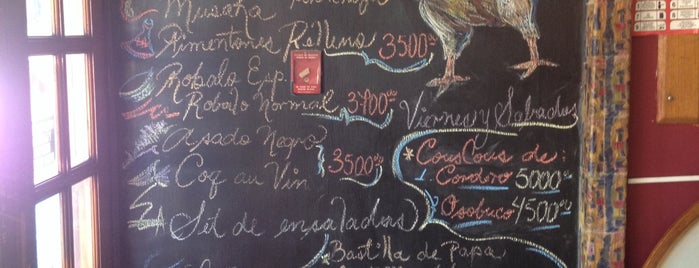 Musaka
Pimentones Rellenos 3500
Robalo Esp.
Robalo Normal 3700
Viernes y Sabados
Asado Negro
Coq au Vin 3500
* CousCous de:
1. Cordero 5000
2 Osobuco 4500
Set de ensaladas
Bastilla de Papa